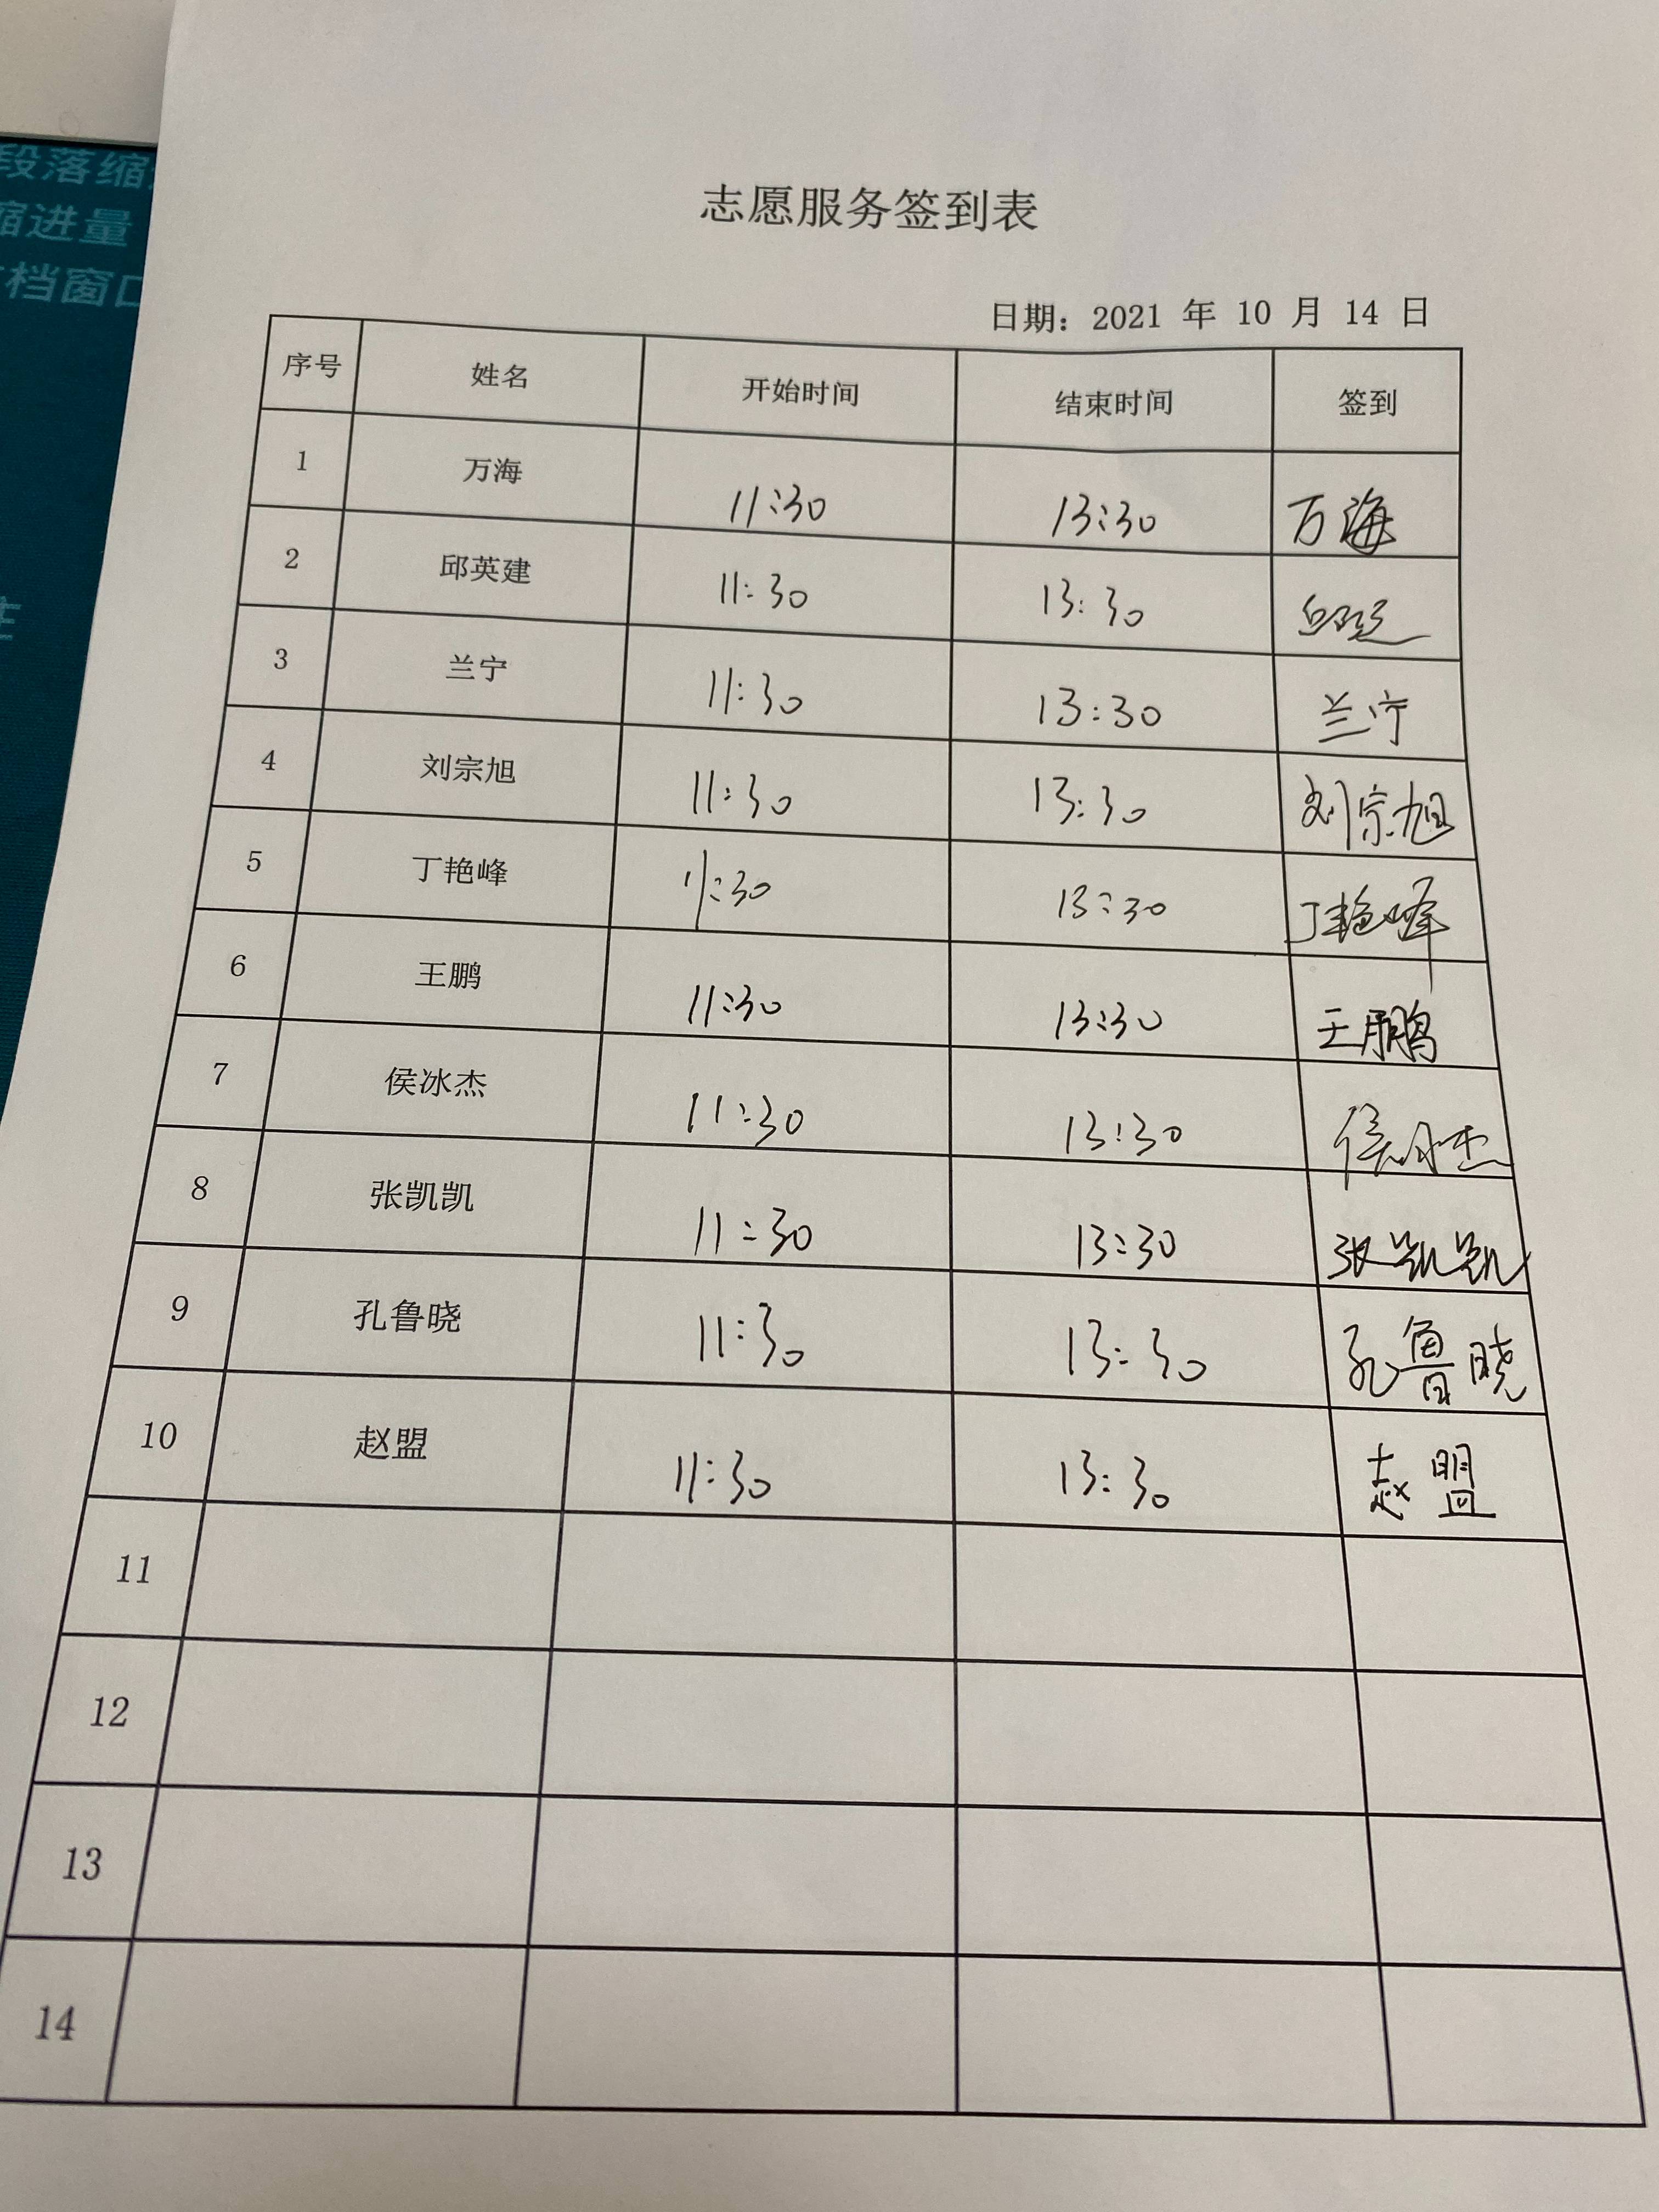 段落缩
缩进量
档窗口
志愿服务签到表
日期：2021 年 10 月 14 日
序号 姓名 开始时间 结束时间 签到
1 万海 11:30 13:30 万海
2 邱英建 11:30 13:30
3 兰宁 11:30 13:30 兰宁
4 刘宗旭 11:30 13:30 刘宗旭
5 丁艳峰 11:30 13:30 丁艳峰
6 王鹏 11:30 13:30 王鹏
7 侯冰杰 11:30 13:30 侯冰杰
8 张凯凯 11:30 13:30 张凯凯
9 孔鲁晓 11:30 13:30 孔鲁晓
10 赵盟 11:30 13:30 赵盟
11
12
13
14